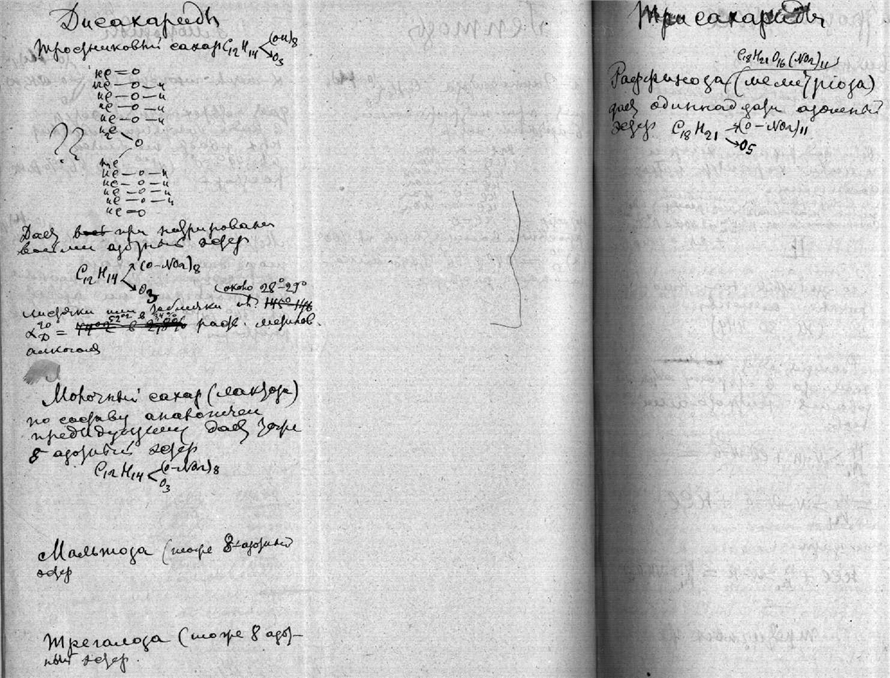 Дисахариды
Тростниковый сахар C12H14 <(OH)8 O3
HC = O
HC – O – H
HC – O – H
HC – O – H
HC – O – H
HC
O
??
HC
HC – O – H
HC – O – H
HC – O – H
HC – O – H
HC – O
Дает при нитровании
восьми азотный эфир
C12H14 (O–NO2)8
O3
(около 28°–29°
в
αD =
раств. метилов.
алкоголя
Молочный сахар (лактоза)
по составу аналогичен
предидущему дает тоже
8 азотный эфир
C12H14 <(O–NO2)8
O3
Мальтоза (тоже 8-азотный
эфир
Трегалоза (тоже 8 азот–
ный эфир.
Трисахариды
C18H21O16(NO2)11
Раффиноза (мелитриоза)
дает одиннадцати азотный
эфир C18H21 (O–NO2)11
O5